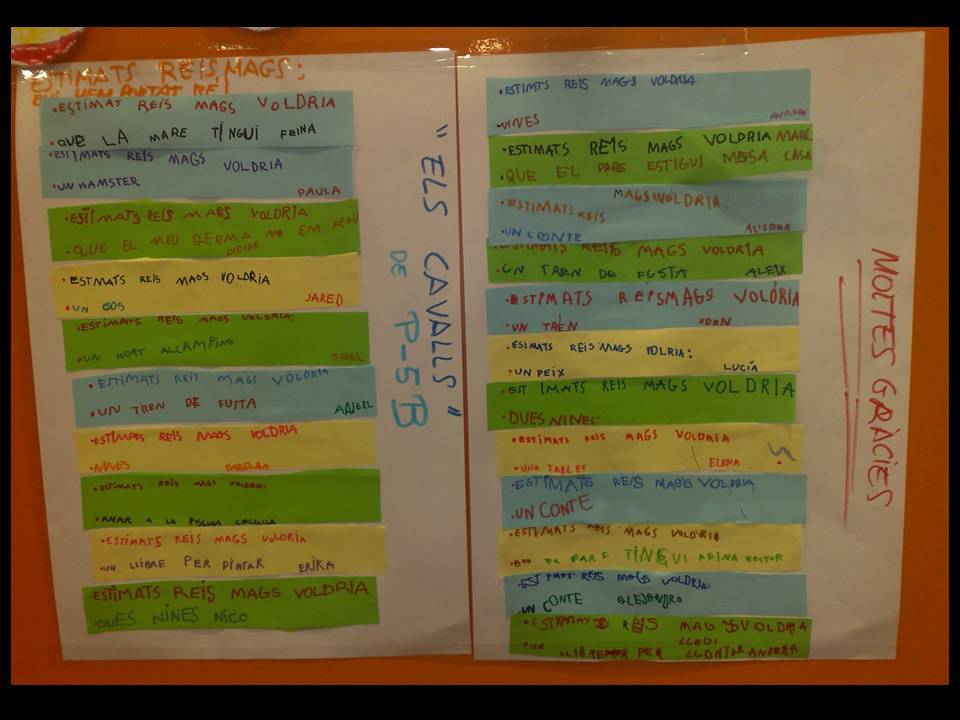 ESTIMATS REIS MAGS:
·ESTIMAT REIS MAGS VOLDRIA
·QUE LA MARE TINGUI FEINA
·ESTIMATS REIS MAGS VOLDRIA
·UN HAMSTER PAULA
·ESTIMATS REIS MAGS VOLDRIA
·QUE EL MEU GERMA NO EM
DIDIER
·ESTMATS REIS MAGS VOLDRIA
·UN GOS JARED
·ESTIMATS REIS MAGS VOLDRIA:
·UN HORT ALCAMPINO JOEL
·ESTIMATS REIS MAGS VOLDRIA
·UN TREN DE FUSTA ANGEL
·ESTIMATS REIS MAGS VOLDRIA
·NINES
·ESTIMATS REIS MAGS VOLDRIA:
·ANAR A LA PISCINA
·ESTIMATS REIS MAGS VOLDRIA
·UN LLIBRE PER PINTAR ERIKA
·ESTIMATS REIS MAGS VOLDRIA
·DUES NINES NICO
"ELS CAVALLS"
DE P-5 B
·ESTIMTS REIS MAGS VOLDRIA
·NINES AURORA
·ESTIMATS REIS MAGS VOLDRIA MARC
·QUE EL PARE ESTIGUI MESA CASA
MAGS VOLDRIA:
·ESTIMATS REIS
·UN CONTE
ESTIMATS REIS MAGS VOLDRIA
·UN TREN DE FUSTA ALEIX
·ESTIMATS REISMAGS VOLDRIA
·UN TREN
·ESIMATS REIS MAGS VOLRIA:
·UN PEIX LUCÍA
·ESTIMATS REIS MAGS VOLDRIA
·DUES NINES
·ESTIMATS REIS MAGS VOLDRIA
·UNA TABLET ELENA
·ESTIMATS REIS MAGS VOLDRIA
·UN CONTE
·ESTIMATS REIS MAGS VOLDRIA
EL PARE TINGUI FEINA HECTOR
·ESTIMATS REIS MAGS VOLDRIA:
·UN CONTE ALEJANDRO
·ESTIMATS REIS MAGS VOLDRIA
·UN PER
MOLTES GRÀCIES